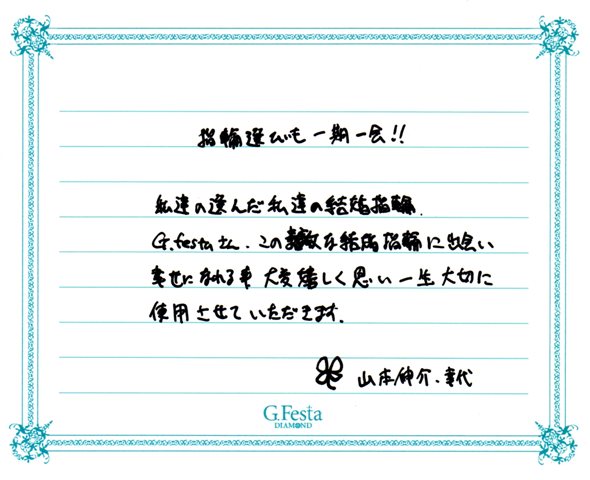 指輪選びも一期一会!!
私達の選んだ私達の結婚指輪.
G.festaさん.この素敵な結婚指輪に出会い
幸せになれる事 大変嬉しく思い一生大切に
使用させていただきます.
山本伸介・幸代
G.Festa
DIAMOND